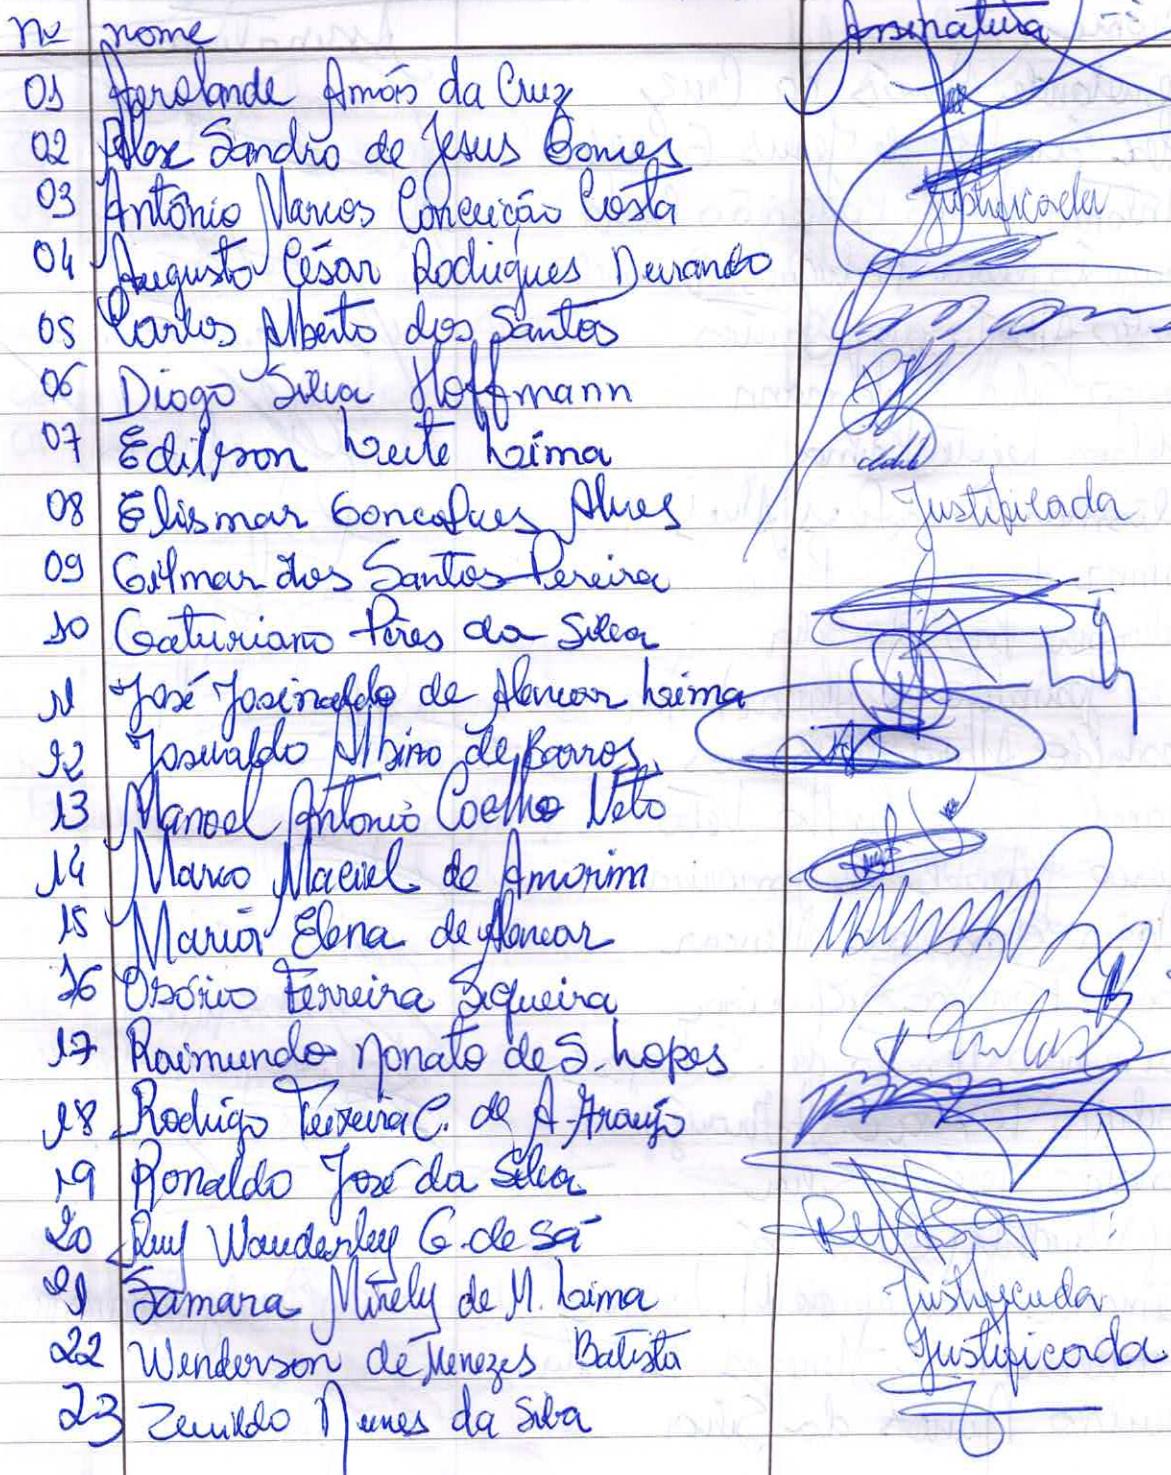 Nº nome Assinatura
01 Aerolande Amós da Cruz
02 Alex Sandro de Jesus Gomes
03 Antônio Marcos Conceição Costa Justificada
04 Augusto César Rodrigues Durando
05 Carlos Alberto dos Santos
06 Diogo Silva Hoffmann
07 Edilson Leite Lima
08 Elismar Goncalves Alves Justificada
09 Gilmar dos Santos Pereira
10 Gaturiano Pires da Silva
11 José Josinaldo de Alencar Lima
12 Josuvaldo Albino de Barros
13 Manoel Antonio Coelho Neto
14 Marco Maciel de Amorim
15 Maria Elena de Alencar
16 Osório Ferreira Siqueira
17 Raimundo Nonato de S. Lopes
18 Rodrigo Teixeira C. de A. Araujo
19 Ronaldo José da Silva
20 Ruy Wanderley G. de Sá
21 Samara Mirely de M. Lima Justificada
22 Wenderson de Menezes Batista Justificada
23 Zenildo Nunes da Silva